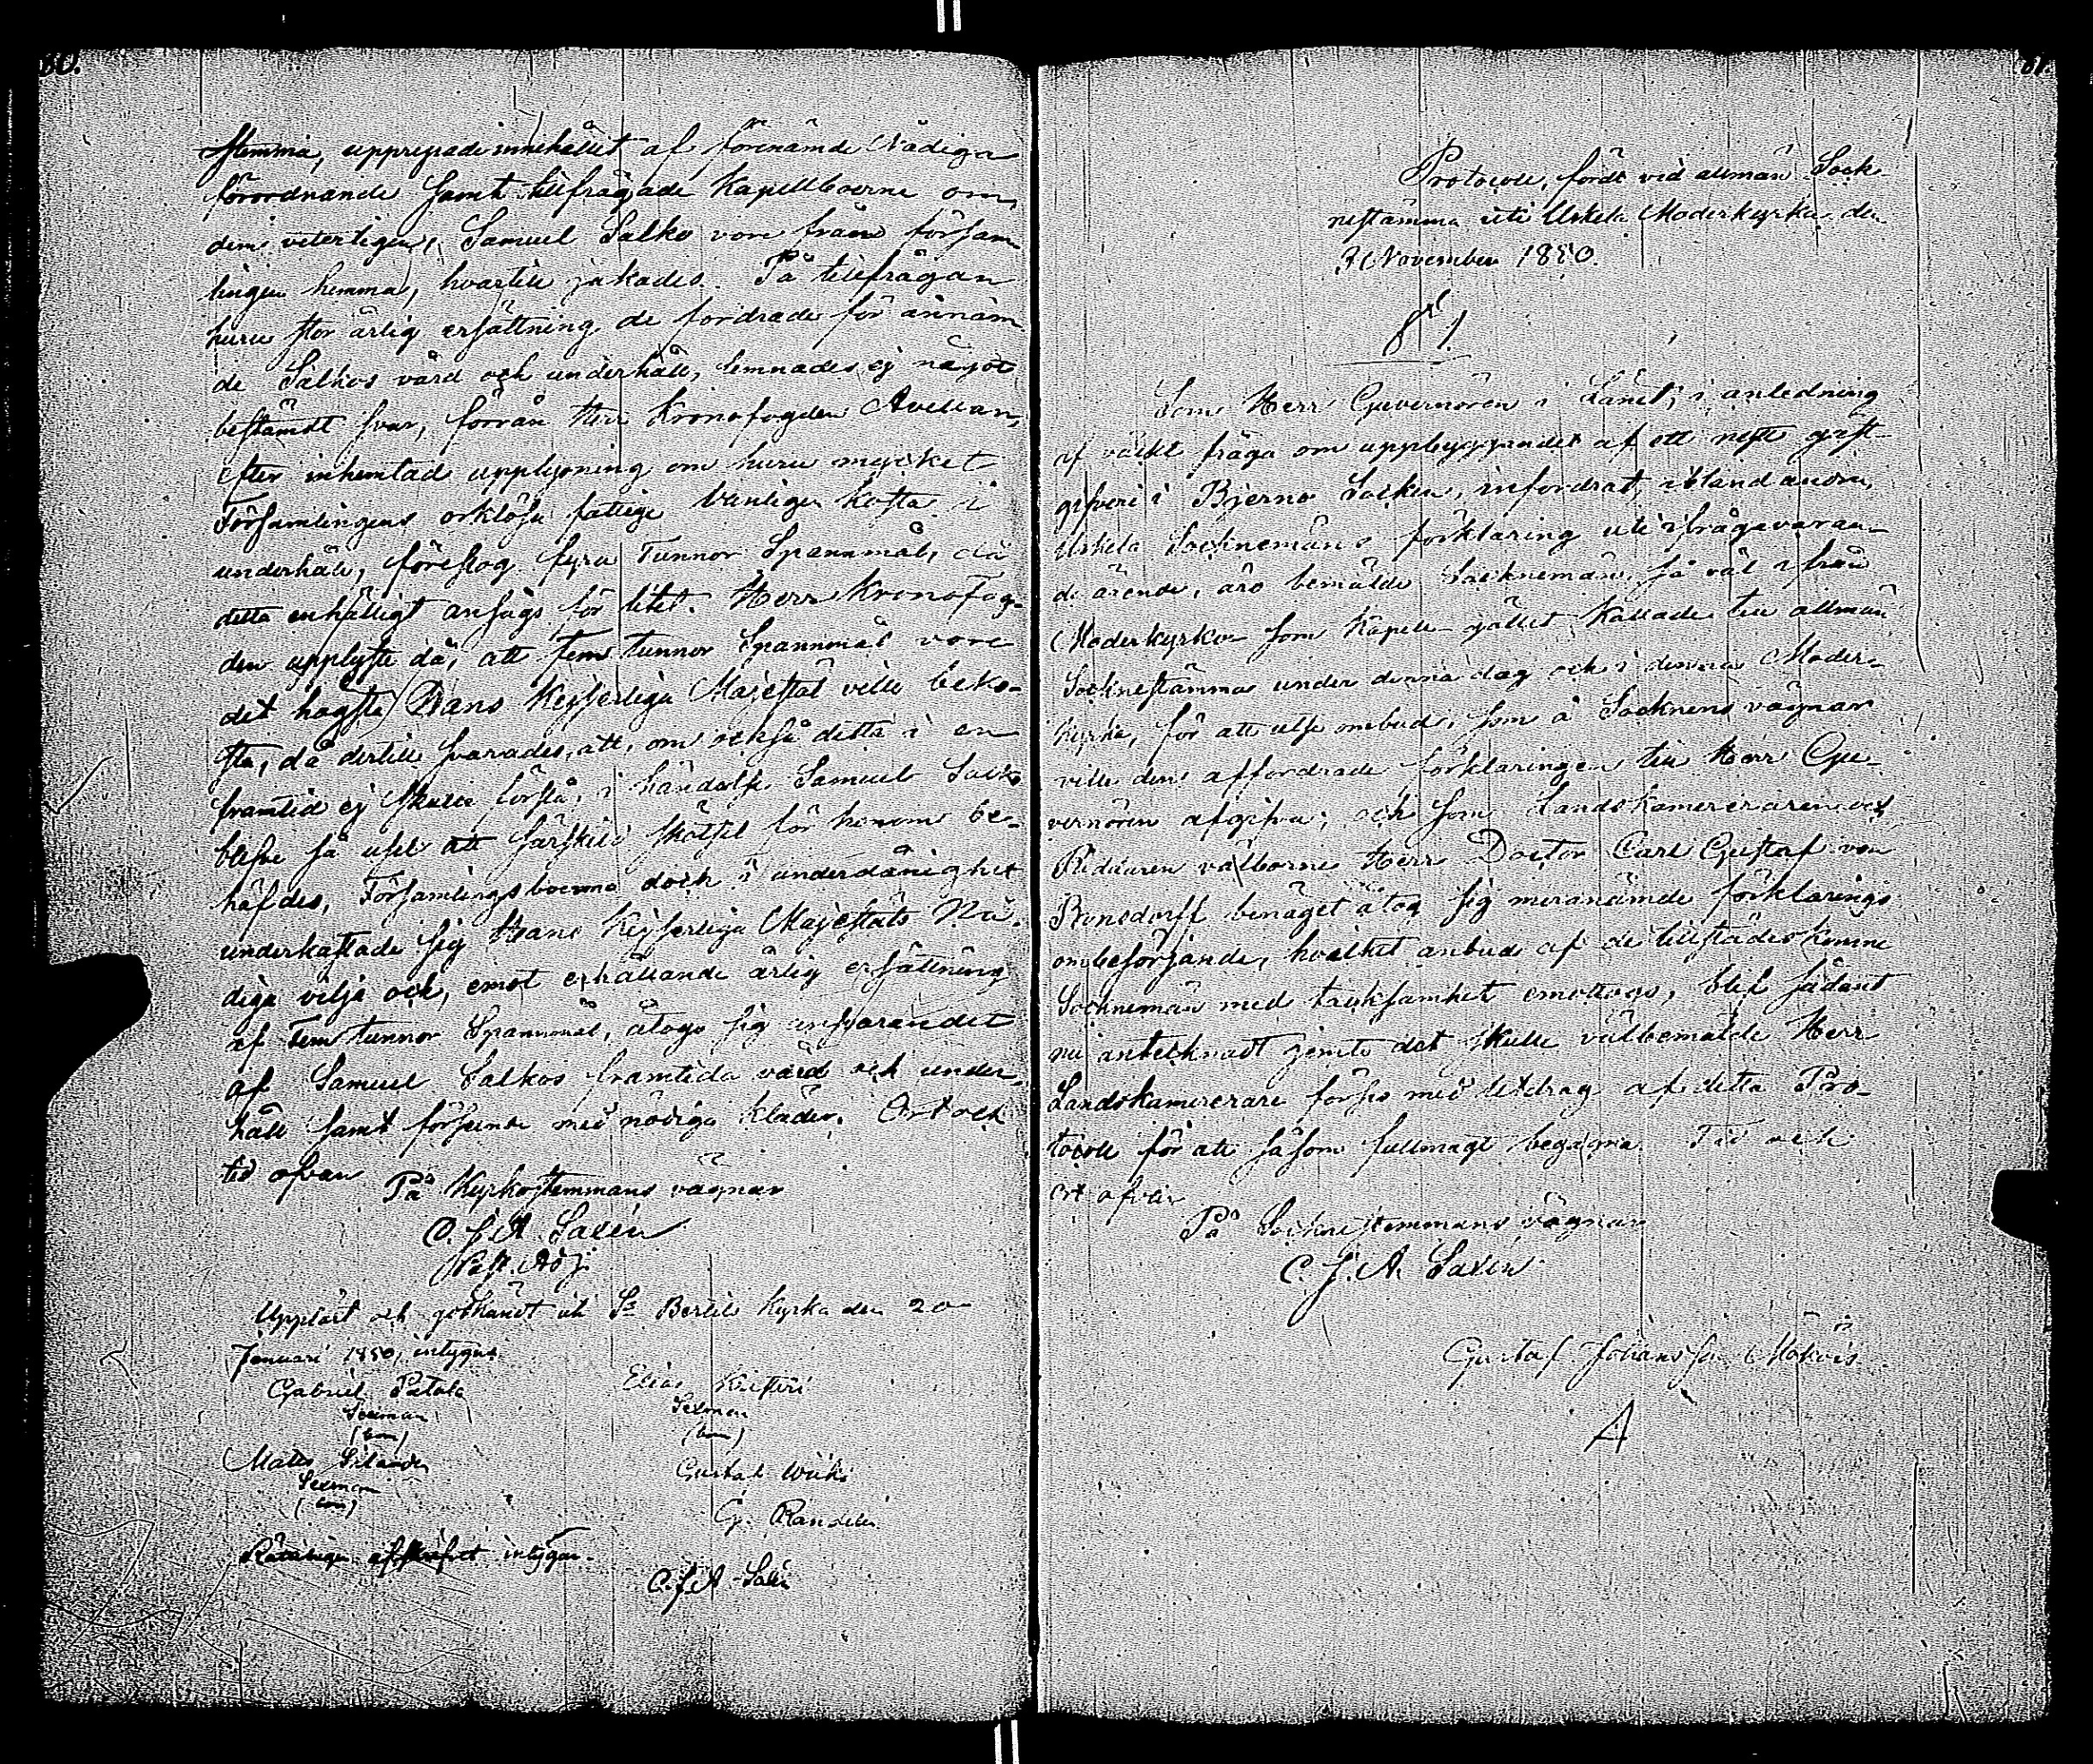 60.
stemma, upprepade innehållet af förenämde Nådiga
förordnande samt tillfrågade Kapellboerne om,
dem veterligen, Samuel Salko vore från försam-
lingen hemma, hvartill jakades. På tillfrågan
huru stor årlig ersättning de fordrade för ännäm-
de Salkos vård och underhåll, lemnades ej något
bestämdt svar, förrän Herr Kronofogden Avellan,
efter inhemtad upplysning om huru mycket
Församlingens orklösa fattige vanligen kosta i
underhåll, föreslog fyra Tunnor Spannmål, då
detta enhälligt ansågs för litet. Herr Kronofog-
den upplyste då, att fem tunnor Spannmål vore
det högsta Hans Kejserliga Majestät ville beko-
sta, då dertill svarades, att, om också detta i en
framtid ej skulle förslå, i händelse Samuel Salko
blefve så usel att särskild skötsel för honom be-
höfdes, Församlingsboerna dock i underdånighet
underkastade sig Hans Kejserliga Majestäts Nå-
diga vilja och, emot erhållande årlig ersättning
af Fem tunnor Spannmål, åtogo sig ansvarandet
af Samuel Salkos framtida vård och under-
håll samt förseende med nödiga kläder. Ort och
tid ofvan
På Kyrkostemmans vägnar
C. J. A. Salin
Past. Adj.
Uppläst och godkändt uti St Bertils Kyrka den 20
Januari 1850, intyga:
Gabriel Pätola
Sexman
(bm)
Elias
Sexman
(bm)
Matts Silander
Sexman
(bm)
Gustaf Wiiki
G. Randelin
Rätteligen afskrifvet intygar.
C. J. A. Salin
61.
Protocoll, fördt vid allmän Sock-
nestämma uti Uskela Moderkyrka den
3 November 1850.
§ 1.
Som Herr Guvernören i Länet, i anledning
af väckt fråga om uppbyggandet af ett nytt gäst-
gifveri i Bjerno Socken, infordrat, ibland andra,
Uskela Sockenemäns förklaring uti ifrågavaran-
de ärende, äro bemälde Sockenemän, så väl ifrån
Moderkyrko- som Kapell-gället kallade till allmän
Sockenestämma under denna dag och i denna Moder-
kyrka, för att utse ombud, som å Socknens vägnar
ville den affordrade förklaringen till Herr Gu-
vernören afgifva; och som Landskamereraren och
Riddaren välborne Herr Doctor Carl Gustaf von
Bonsdorff benäget åtog sig meranämde förklarings
ombesörjande, hvilket anbud af de tillstädeskomne
Sockenemän med tacksamhet emottogs, blef sådant
nu antecknadt jemte det skulle välbemälde Herr
Landskamererare förses med utdrag af detta Pro-
tocoll för att såsom fullmagt begagna. Tid och
ort ofvan
På Sockenestemmans vägnar
C. J. A. Salin
Gustaf Johansson
A